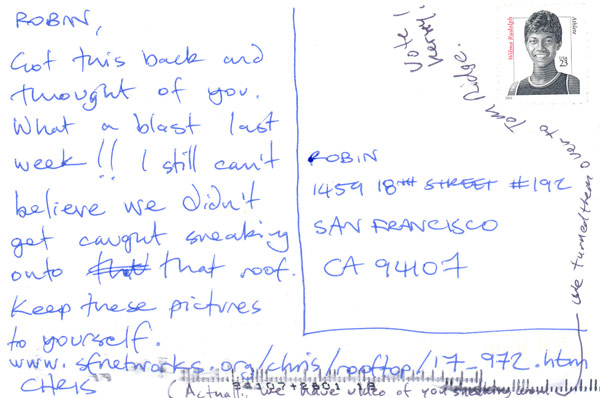 ROBIN,
Got this back and
thought of you.
What a blast last
week!! I still can't
believe we didn't
get caught sneaking
onto that roof.
Keep these pictures
to yourself.
www.sfnetworks.org/chris/rooftop/17_972.htm
CHRIS
(Actually, we have video of you sneaking
we turned them over to
Tom Ridge.
Vote!
Kerry!
Wilma Rudolph
Athlete
USA
23
ROBIN
1459 18TH STREET #192
SAN FRANCISCO
CA 94107